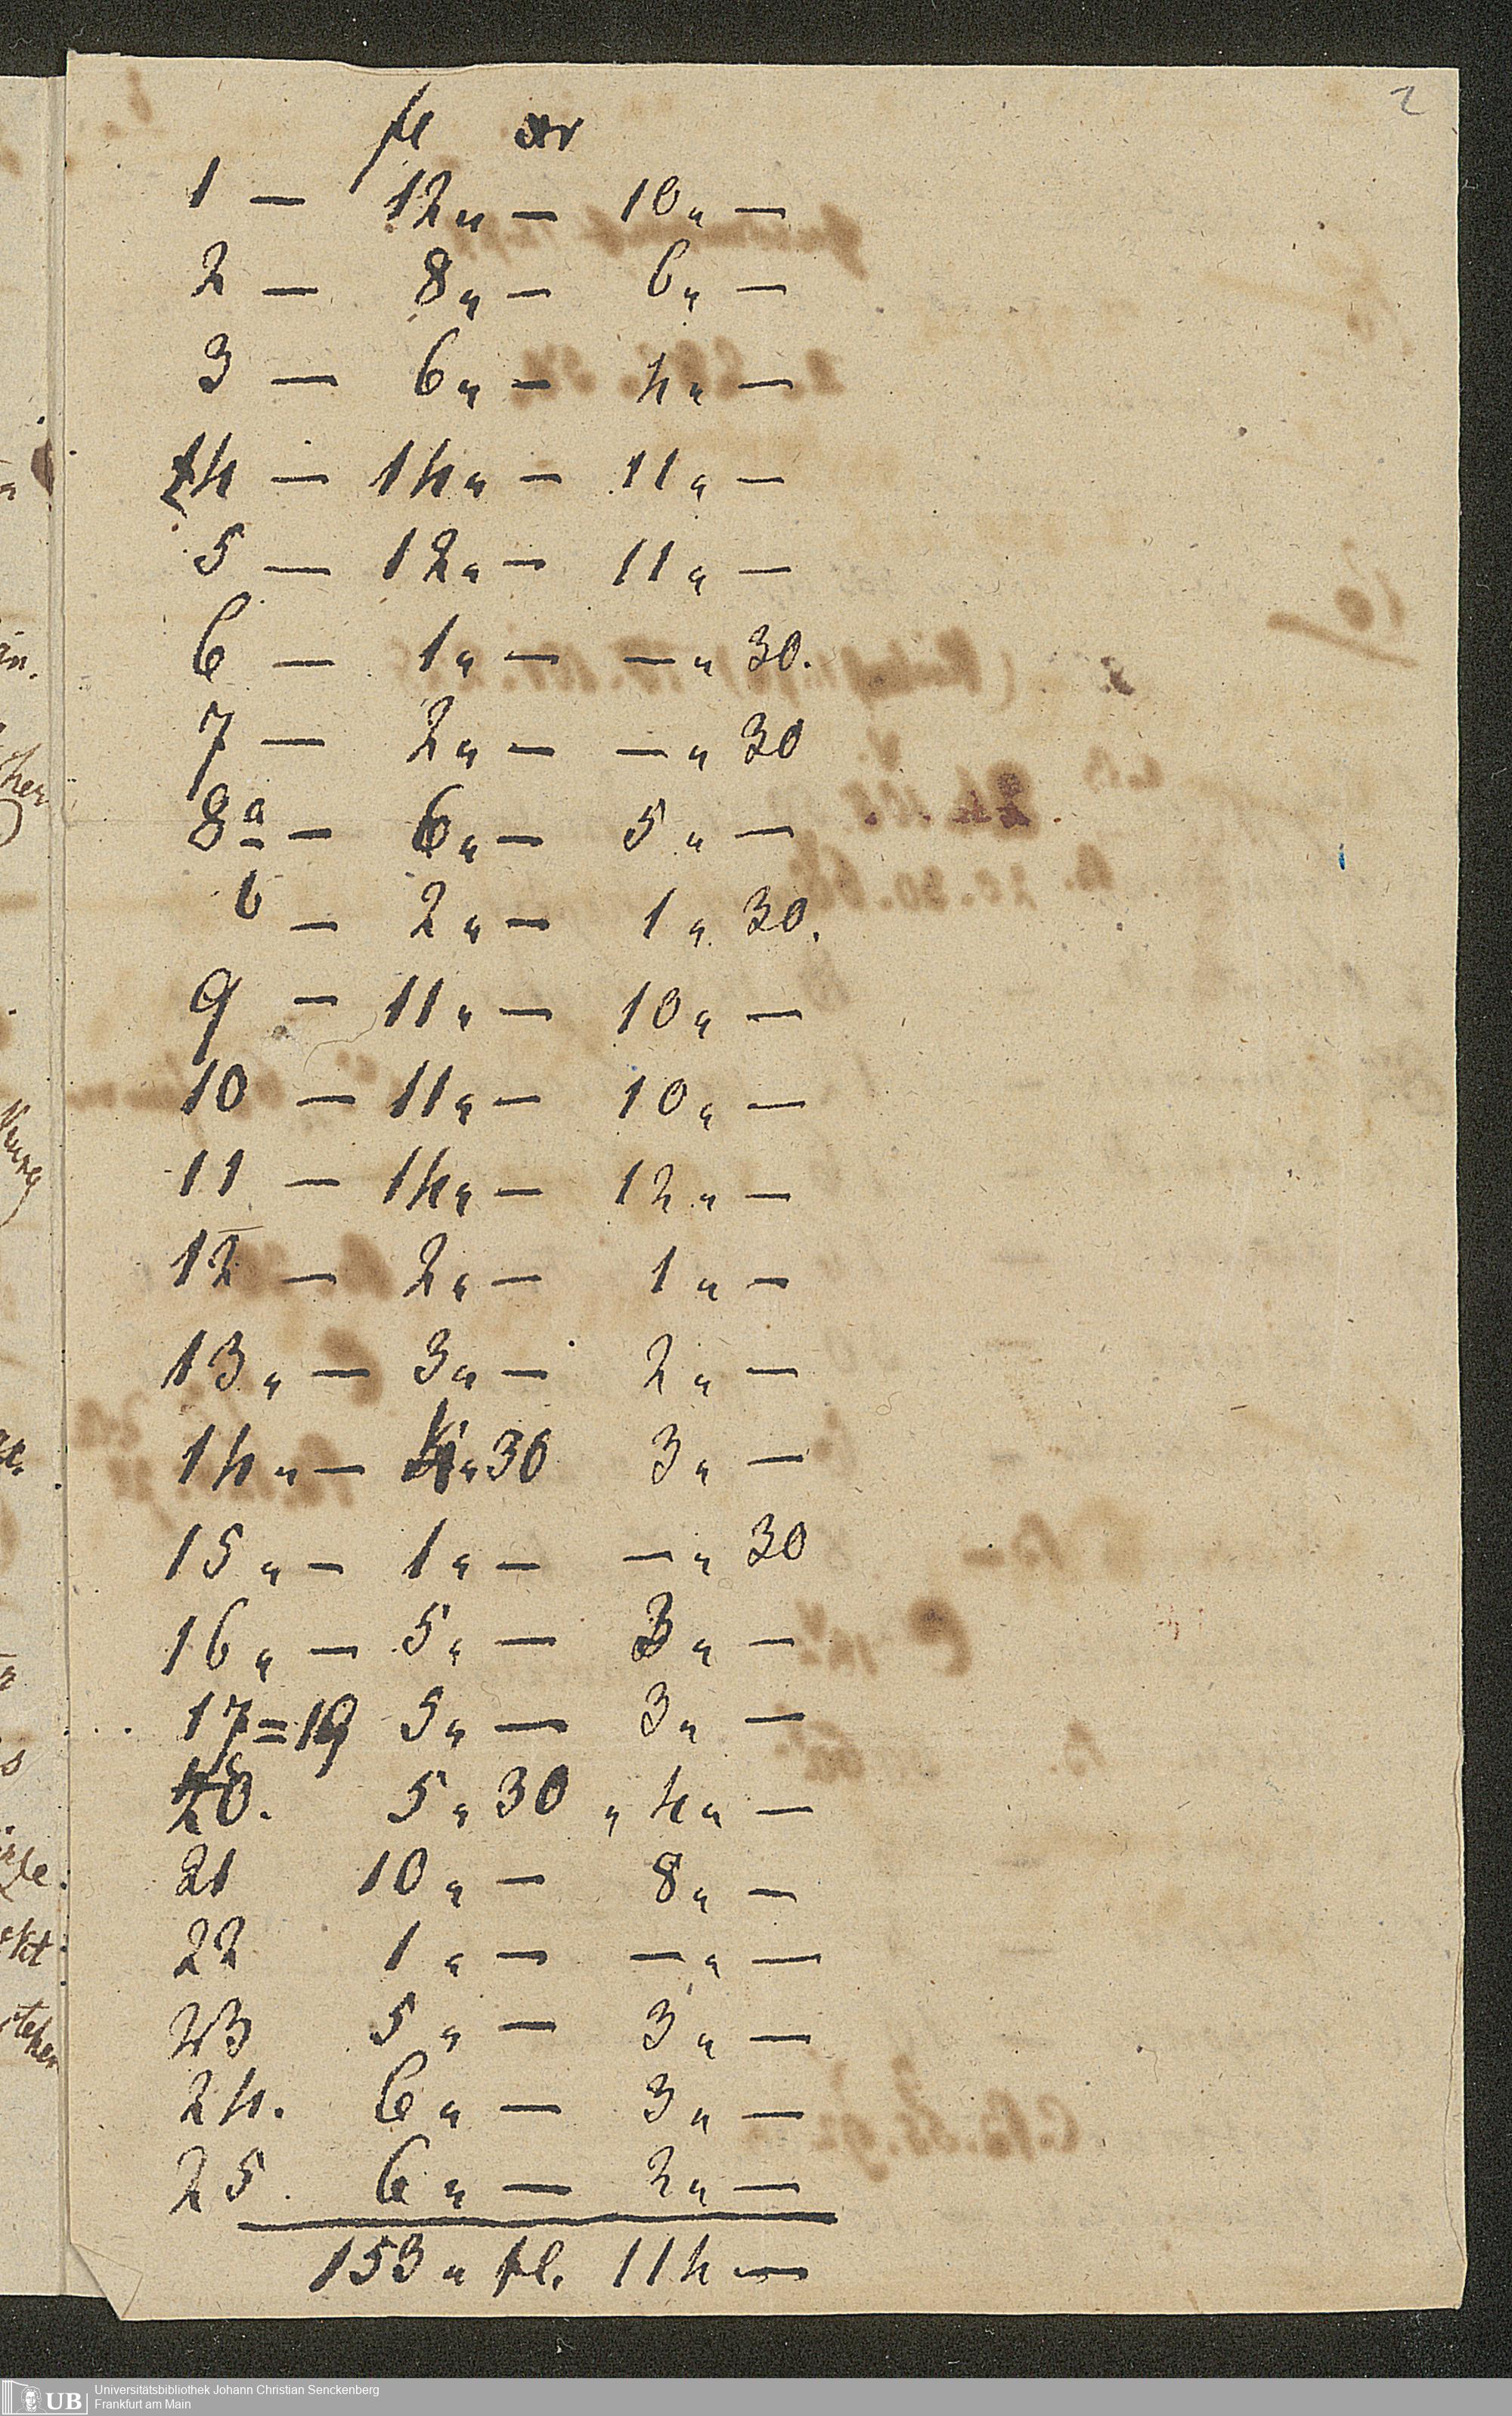 2
fl xr
1 — 12 „ — 10 „ —
2 — 8 „ — 6 „ —
3 — 6 „ — 4 „ —
4 — 14 „ — 11 „ —
5 — 12 „ — 11 „ —
6 — 1 „ — — „ 30.
7 — 2 „ — — „ 30
8a — 6 „ — 5 „ —
b — 2 „ — 1 „ 30.
9 — 11 „ — 10 „ —
10 — 11 „ — 10 „ —
11 — 14 „ — 12 „ —
12 — 2 „ — 1 „ —
13 „ — 3 „ — 2 „ —
14 „ — 4 „ 30 3 „ —
15 „ — 1 „ — — „ 30
16 „ — 5 „ — 3 „ —
17=19 5 „ — 3 „ —
20. 5 „ 30 „ 4 „ —
21 10 „ — 8 „ —
22 1 „ — — „ —
23 5 „ — 3 „ —
24. 6 „ — 3 „ —
25 6 „ — 2 „ —
153 „ fl. 114 —
UB
Universitätsbibliothek Johann Christian Senckenberg
Frankfurt am Main